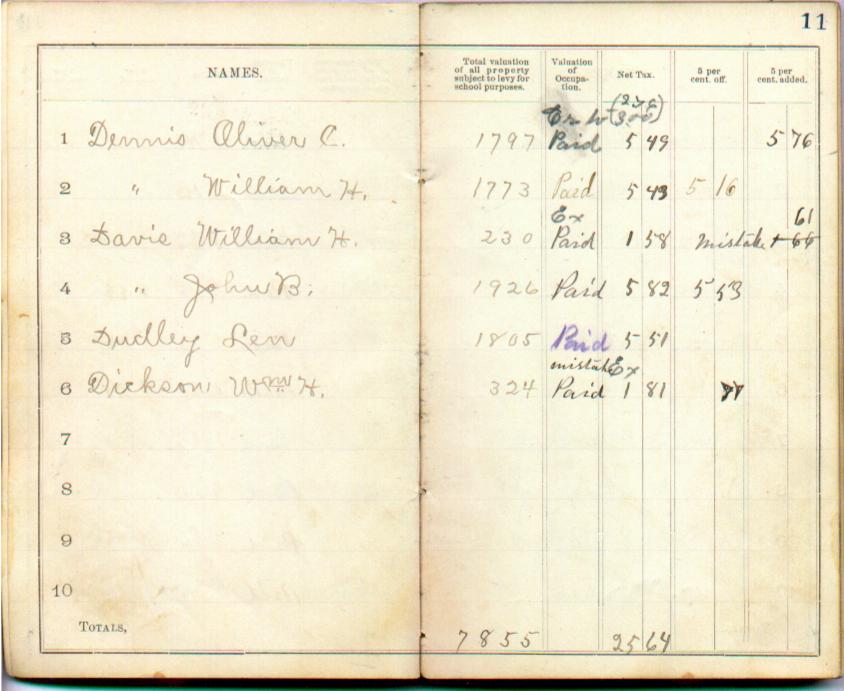 11
NAMES. Total valuation of all property subject to levy for school purposes. Valuation of Occupation. Net Tax. 5 per cent. off. 5 per cent. added.
1 Dennis Oliver C. 1797 Paid 5 49 5 76
2 " William H. 1773 Paid 5 43 5 16
Ex 61
3 Davis William H. 230 Paid 1 58 mistake
4 " John B. 1926 Paid 5 82 5 53
5 Dudley Len 1805 Paid 5 51
mistake Ex
6 Dickson Wm H. 324 Paid 1 81
7
8
9
10
TOTALS, 7855 25 64